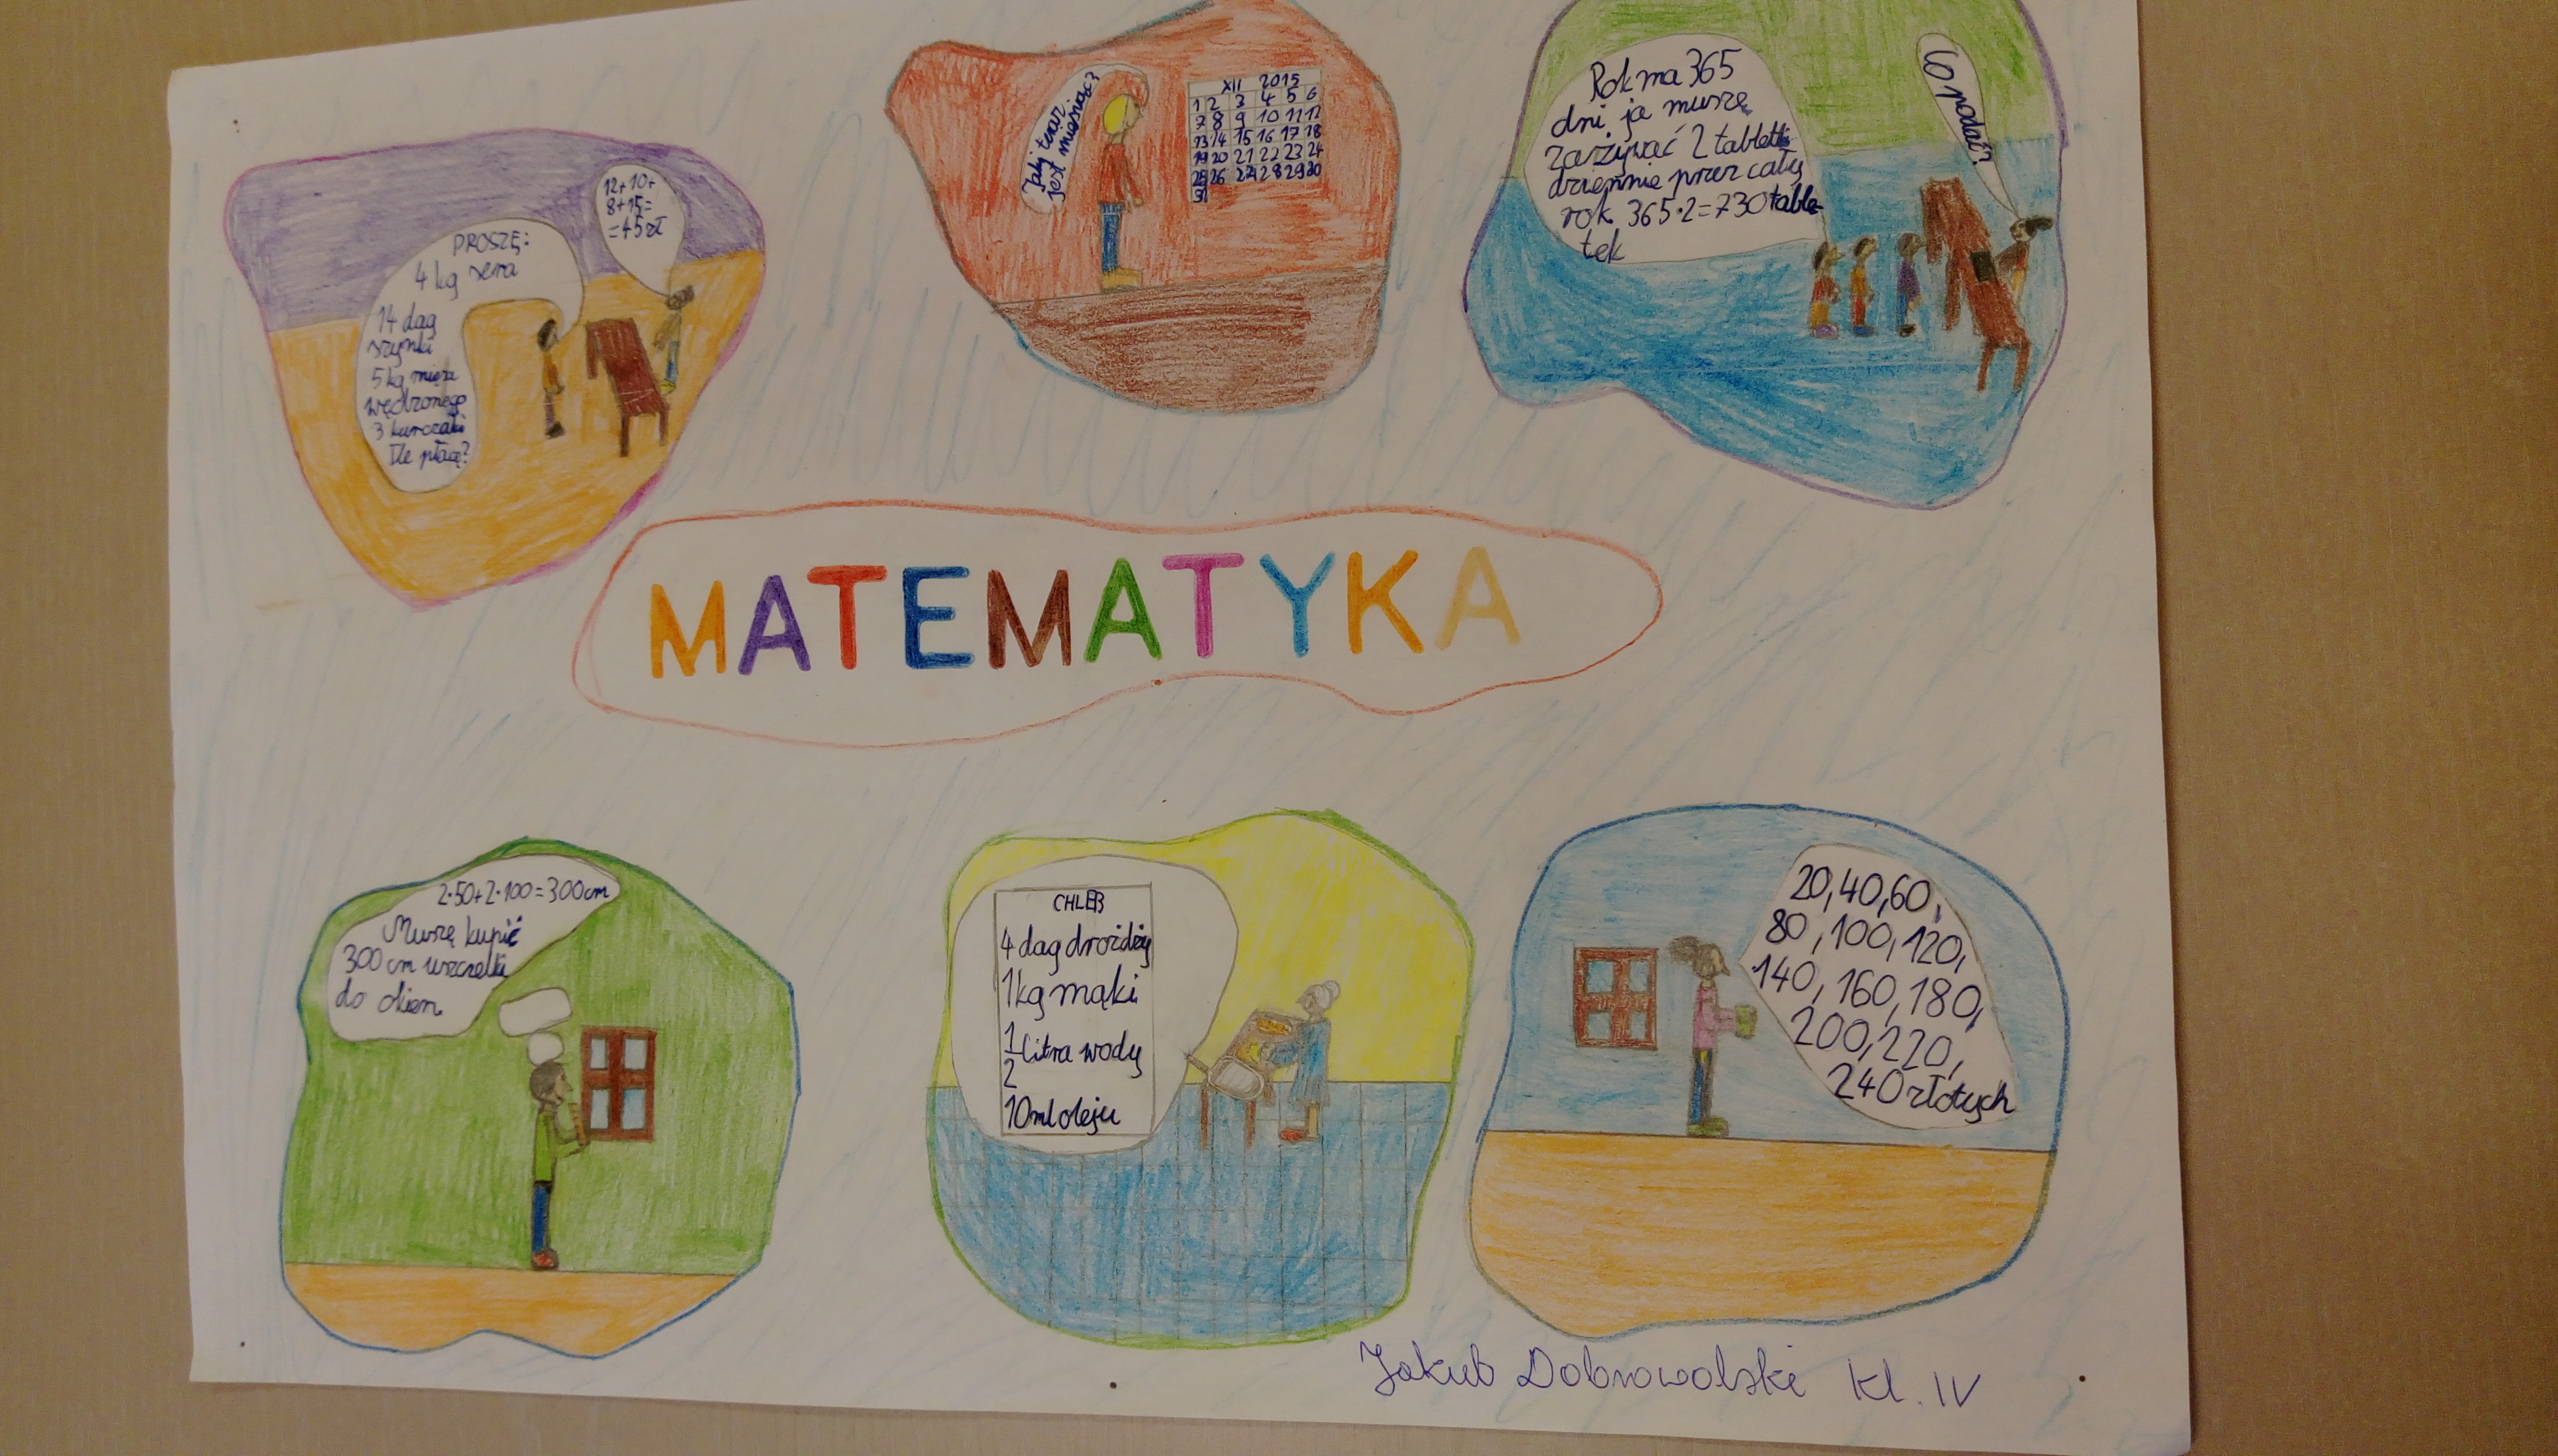 PROSZĘ:
4 kg sera
14 dag
szynki
5 kg mięsa
wędzonego
3 kurczaki
Ile płacę?
12+10+
8+15=
=45 zł
Jaki teraz
jest miesiąc?
XII 2015
1 2 3 4 5 6
7 8 9 10 11 12
13 14 15 16 17 18
19 20 21 22 23 24
25 26 27 28 29 30
31
Rok ma 365
dni ja muszę
zażywać 2 tabletki
dziennie przez cały
rok 365·2=730 table
tek
Co podać?
MATEMATYKA
2·50+2·100=300cm
Muszę kupić
300 cm uszczelki
do okien
CHLEB
4 dag drożdży
1kg mąki
1/2 litra wody
10ml oleju
20, 40, 60,
80, 100, 120,
140, 160, 180,
200, 220,
240 złotych
Jakub Dobrowolski Kl. IV